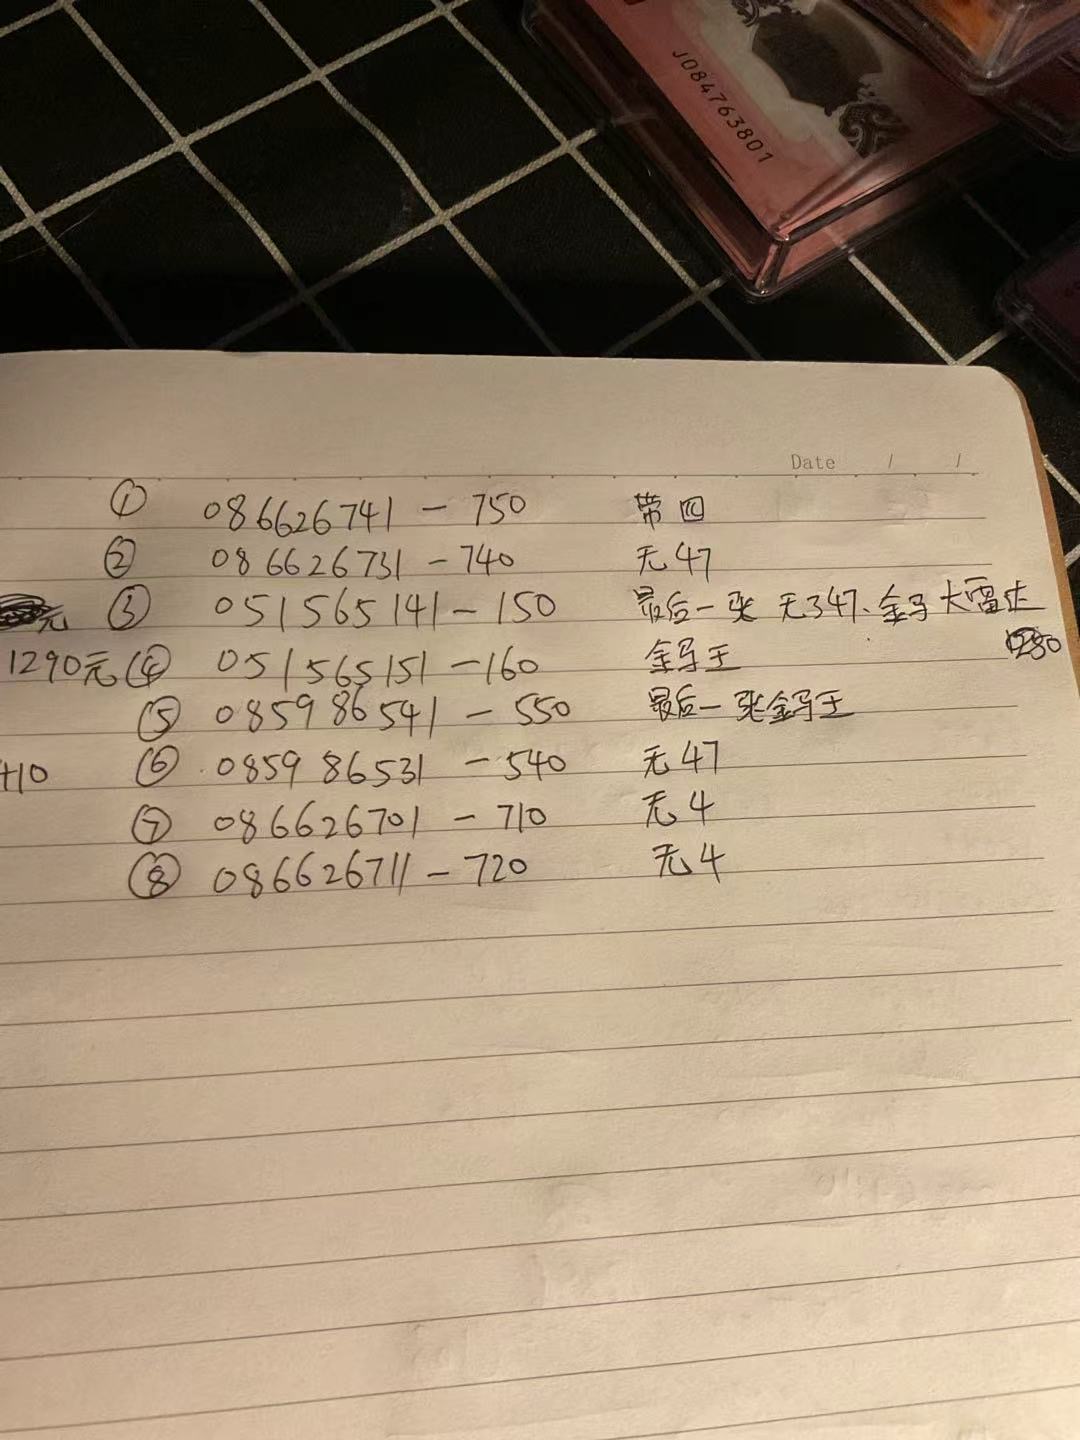 J084763801
Date / /
① 086626741 - 750 带四
② 086626731 - 740 无47
元 ③ 051565141 - 150 最后一张 无347、金马大雷达
1290元 ④ 051565151 - 160 金马王
⑤ 085986541 - 550 最后一张金马王
410 ⑥ 085986531 - 540 无47
⑦ 086626701 - 710 无4
⑧ 086626711 - 720 无4